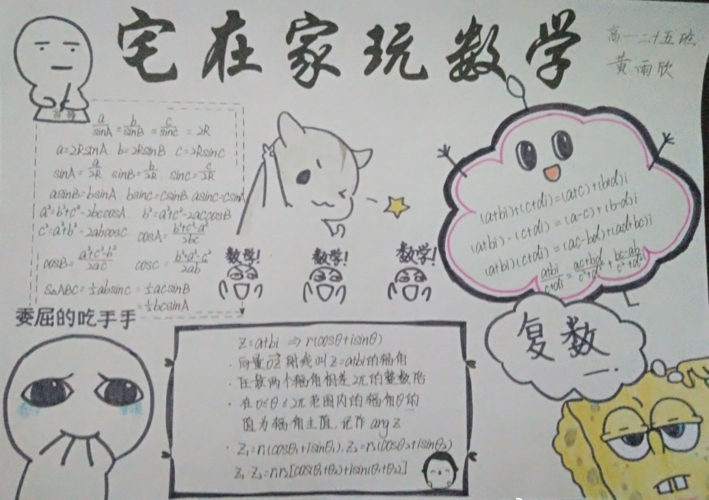 宅在家玩数学
高一二十五班
黄雨欣
a/sinA = b/sinB = c/sinC = 2R
a=2RsinA b=2RsinB c=2RsinC
sinA = a/2R sinB = b/2R sinC = c/2R
asinB=bsinA bsinC=csinB asinC=csinA
a²=b²+c²-2bccosA b²=a²+c²-2accosB
c²=a²+b²-2abcosC cosA=
cosB= a²+c²-b²/2ac cosC=
S△ABC=½absinC=½acsinB
=½bcsinA
委屈的吃手手
数学!
数学!
数学!
(a+bi)+(c+di)=(a+c)+(b+d)i
(a+bi)-(c+di)=(a-c)+(b-d)i
(a+bi)(c+di)=(ac-bd)+(ad+bc)i
a+bi/c+di = ac+bd/c²+d² +
复数
Z=a+bi ⇒ r(cosθ+isinθ)
·向量OZ 叫Z=a+bi的辐角
·任意两个辐角相差2π的整数倍
·在0≤θ<2π范围内的辐角θ的
值为辐角主值,记作argz
·Z₁=r₁(cosθ₁+isinθ₁), Z₂=r₂(cosθ₂+isinθ₂)
Z₁·Z₂=r₁r₂[cos(θ₁+θ₂)+isin(θ₁+θ₂)]